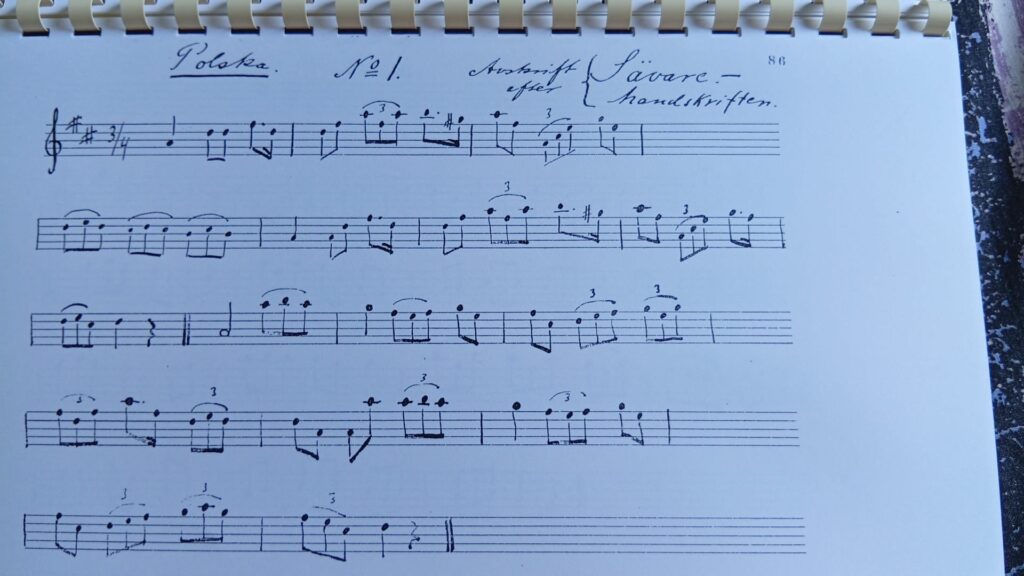 Polska. No 1. Avskrift efter { Sävare.- handskriften. 86
3/4 3 3
3 3
3 3
3 3 3 3
3 3 3